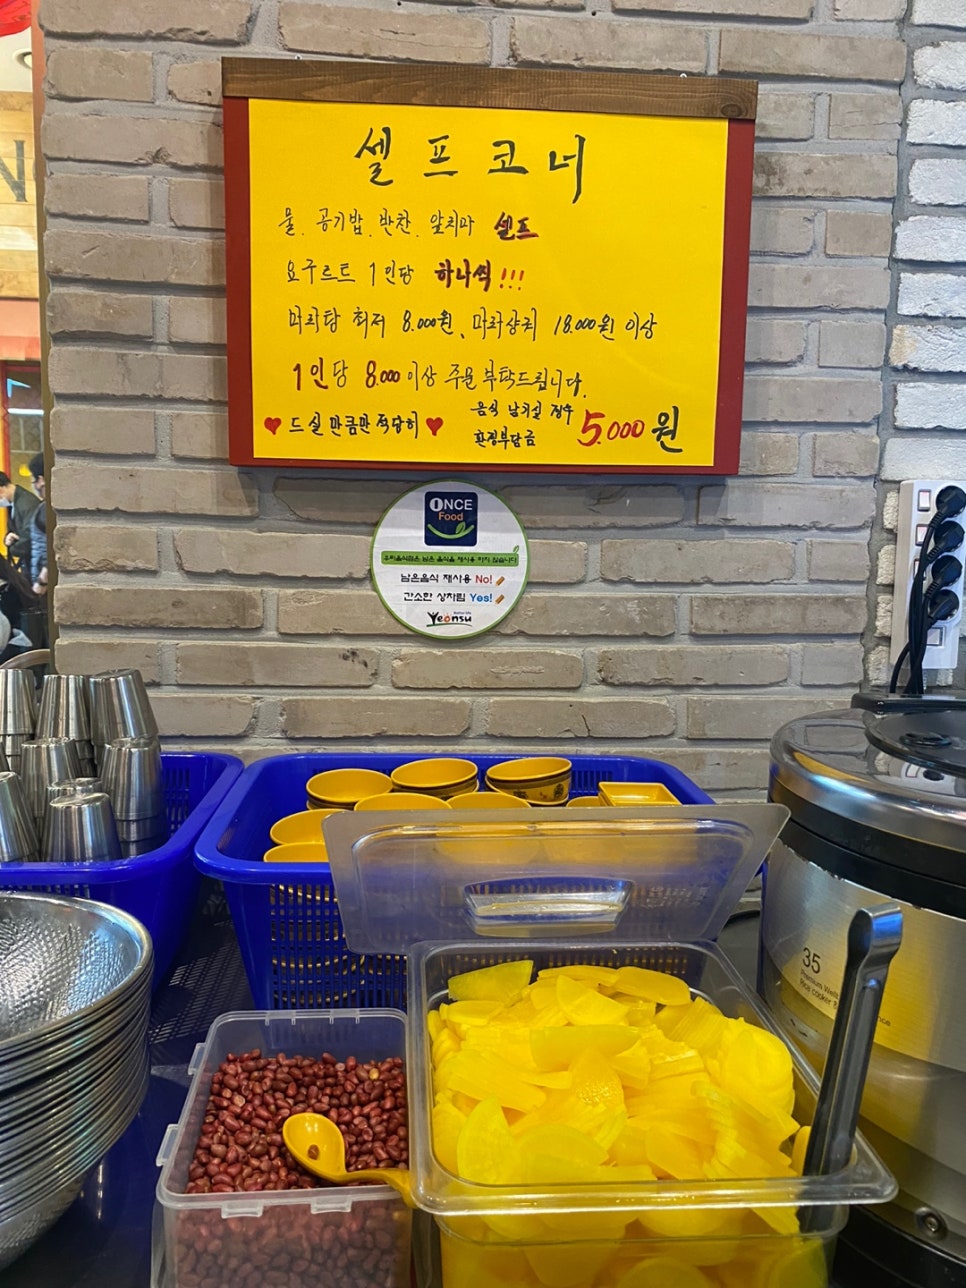 셀프코너
물. 공기밥. 반찬. 앞치마 셀프
요구르트 1인당 하나씩!!!
마라탕 최저 8.000원, 마라샹궈 18.000원 이상
1인당 8.000이상 주문 부탁드립니다.
♥드실 만큼만 적당히♥
음식 남기실 경우
환경부담금 5.000원
ONCE
Food
우리음식점은 남은 음식을 재사용 하지 않습니다
남은음식 재사용 No!
간소한 상차림 Yes!
Yeonsu
N
35
Premium
Rice cooker